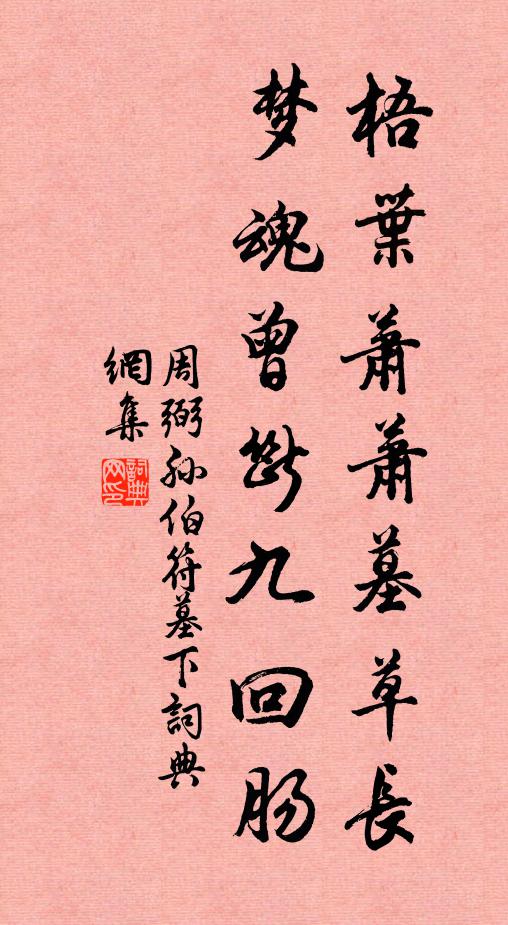 梧葉蕭蕭墓草長
梦魂曾斷九回肠
周弼孙伯符墓下詞典
網集
詞典
网印